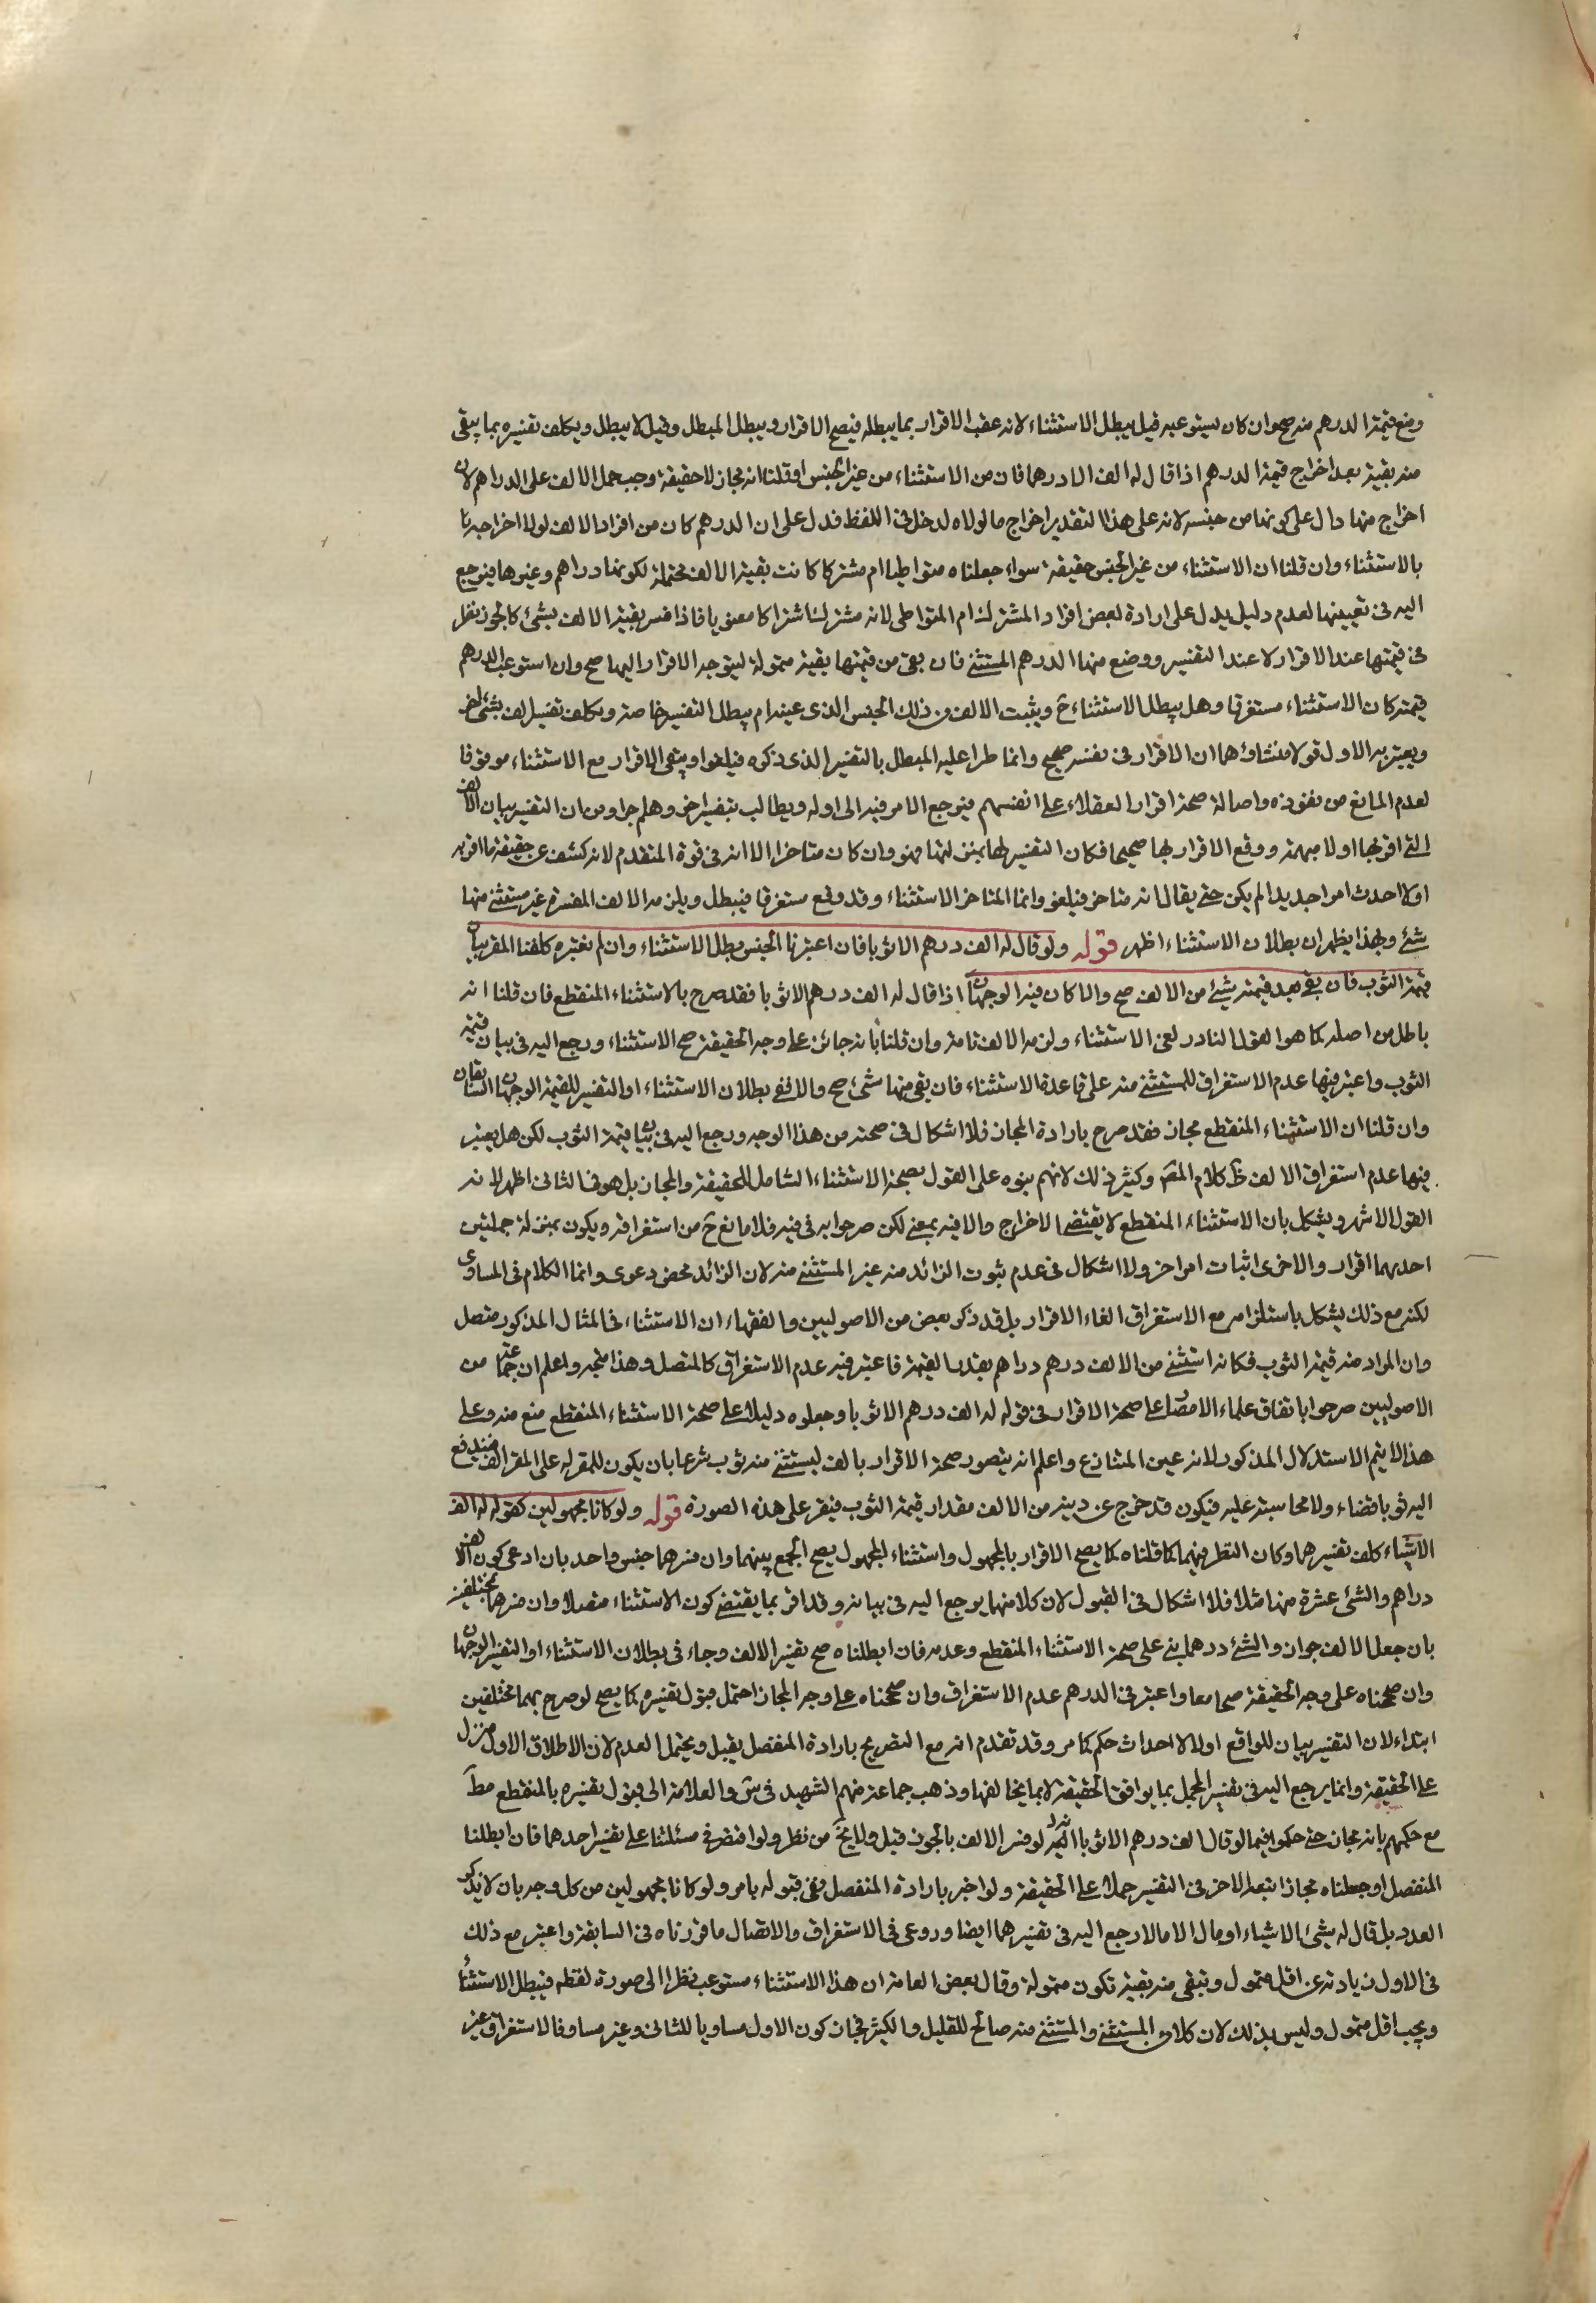 وضع قيمة الدرهم منه صح وان كان يستوعبه قيل يبطل الاستثناء لانه عقب الاقرار بما يبطله فيصح الاقرار ويبطل المبطل وقيل لا يبطل ويكلف تفسيره بما يبقى
منه بقية بعد اخراج قيمة الدرهم اذا قال له الف الا درهما فان من الاستثناء من غير الجنس او قلنا انه مجاز لا حقيقة وجب حمل الالف على الدراهم لان
اخراج منها دال على كونها من جنسه لانه على هذا التقدير اخراج ما لولاه لدخل في اللفظ فدل على ان الدرهم كان من افراد الالف لولا اخراجه
بالاستثناء وان قلنا ان الاستثناء من غير الجنس حقيقة سواء جعلناه متواطيا ام مشتركا كانت بقية الالف محتملة لكونها دراهم وغيرها فيرجع
اليه في تعيينها لعدم دليل يدل على ارادة بعض افراد المشترك ام المتواطى لانه مشترك اشتراكا معنويا فاذا فسر بقية الالف بشئ كالجوز نظر
في قيمتها عند الاقرار لا عند التفسير ووضع منها الدرهم المستثنى فان بقى من قيمتها بقية متمولة ليتوجه الاقرار اليها صح وان استوعب الدرهم
قيمته كان الاستثناء مستغرقا وهل يبطل الاستثناء ح ويثبت الالف من ذلك الجنس الذى عينه ام يبطل التفسير خاصة ويكلف تفسير الف بشئ اخر
ويعتبر به الاول قولا منشاؤهما ان الاقرار في نفسه صحيح وانما طرا عليه المبطل بالتفسير الذى ذكره فيلغو او يبقى الاقرار مع الاستثناء موقوفا
لعدم المانع من نفوذه واصالة صحة اقرار العقلاء على انفسهم فيرجع الامر فيه الى اوله ويطالب بتفسير اخر وهلم جرا ومن ان التفسير بيان الالف
التى اقر بها اولا مبهمة ووقع الاقرار بها صحيحا فكان التفسير لها بمنزلتها فهو وان كان متاخرا الا انه في قوة المتقدم لانه كشف عن حقيقة ما اقر به
اولا احدث امرا جديدا لم يكن حتى يقال انه متاخر فيلغو وانما المتاخر الاستثناء وقد وقع مستغرقا فيبطل ويلزمه الالف المفسرة غير مستثنى منها
شئ وبهذا يظهر ان بطلان الاستثناء اظهر قوله ولو قال له الف درهم الا ثوبا فان اعتبرنا الجنس بطل الاستثناء وان لم نعتبره كلفنا المقر بيان
قيمة الثوب فان بقى بعد قيمته شئ من الالف صح والا كان فيه الوجهان اذا قال له الف درهم الا ثوبا فقد صرح بالاستثناء المنقطع فان قلنا انه
باطل من اصله كما هو القول النادر لغى الاستثناء ولزمه الالف تامة وان قلنا بانه جائز على وجه الحقيقة صح الاستثناء ورجع اليه في بيان قيمة
الثوب واعتبر فيها عدم الاستغراق للمستثنى منه على قاعدة الاستثناء فان بقى منها شئ صح والا ففى بطلان الاستثناء او التفسير للقيمة الوجهان السابقان
وان قلنا ان الاستثناء المنقطع مجاز فقد صرح بارادة المجاز فلا اشكال في صحته من هذا الوجه ورجع اليه في بيان قيمة الثوب لكن هل يعتبر
فيها عدم استغراق الالف ظ كلام المص وكثير ذلك لانهم بنوه على القول بصحة الاستثناء الشامل للحقيقة والمجاز بل هو في الثانى اظهر لانه
القول الاشهر ويشكل بان الاستثناء المنقطع لا يقتضى الاخراج والا فيه بمعنى لكن صرحوا به في فيه فلا مانع ح من استغراقه ويكون بمنزلة جملتين
احديهما اقرار والاخرى اثبات امر اخر ولا اشكال في عدم ثبوت الزائد منه عنه المستثنى منه لان الزائد محض دعوى وانما الكلام في المساوى
لكنه مع ذلك يشكل باستلزامه مع الاستغراق الغاء الاقرار بل قد ذكر بعض من الاصوليين والفقهاء ان الاستثناء في المثال المذكور متصل
وان المراد منه قيمة الثوب فكانه استثنى من الالف درهم دراهم بقدر القيمة فاعتبر فيه عدم الاستغراق كالمتصل وهذا متجه واعلم ان جماعة من
الاصوليين صرحوا باتفاق علماء الامصار على صحة الاقرار في قوله له الف درهم الا ثوبا وجعلوه دليلا على صحة الاستثناء المنقطع منع منه وعلى
هذا لا يتم الاستدلال المذكور لانه عين المتنازع واعلم انه يتصور صحة الاقرار بالف ليستثنى منه ثوب شرعا بان يكون للمقر له على المقر الف فيدفع
اليه ثوبا قضاء ولا محاسبة عليه فيكون قد خرج عن دينه من الالف مقدار قيمة الثوب فيقر على هذه الصورة قوله ولو كانا مجهولين كقوله له الف
الا شيئا كلف تفسيرهما وكان النظر فيهما كما قلناه كما يصح الاقرار بالمجهول واستثناء المجهول يصح الجمع بينهما وان فسرهما جنس واحد بان ادعى كون الالف
دراهم والشئ عشرة منها مثلا فلا اشكال في القبول لان كلا منهما يرجع اليه في بيانه وقد اقر بما يقتضى كون الاستثناء متصلا وان فسرهما مختلفين
بان جعل الالف جوزا والشئ درهما بنى على صحة الاستثناء المنقطع وعدمه فان ابطلناه صح تفسير الالف وجاء في بطلان الاستثناء او التفسير الوجهان
وان صححناه على وجه الحقيقة صحا معا واعتبر في الدرهم عدم الاستغراق وان صححناه على وجه المجاز احتمل قبول تفسيره كما يصح لو صرح بهما مختلفين
ابتداء لان التفسير بيان للواقع اولا لا احداث حكم كما مر وقد تقدم انه مع التصريح بارادة المنفصل يقبل ويحتمل العدم لان الاطلاق الاول منزل
على الحقيقة وانما يرجع اليه في تفسير المجمل بما يوافق الحقيقة لا بما يخالفها وذهب جماعة منهم الشهيد في س والعلامة الى قبول تفسيره بالمنقطع مط
مع حكمهم بانه مجاز حتى حكموا فيما لو قال الف درهم الا ثوبا لو فسر الالف بالجوز قبل ولا يخ من نظر ولو اقتصر في مسئلتنا على تفسير احدهما فان ابطلنا
المنفصل او جعلناه مجازا اتبعه الاخر في التفسير حملا على الحقيقة ولو اخبر بارادة المنفصل ففى قبوله ما مر ولو كانا مجهولين من كل وجه بان لا يذكر
العدد بل قال له شئ الا شيئا او مال الا مالا رجع اليه في تفسيرهما ايضا وروعى في الاستغراق والاتصال ما قررناه في السابقة واعتبر مع ذلك
في الاول زيادته عن اقل متمول وتبقى منه بقية تكون متمولة وقال بعض العامة ان هذا الاستثناء مستوعب نظرا الى صورة لفظه فيبطل الاستثناء
ويجب اقل متمول وليس بذلك لان كلا من المستثنى والمستثنى منه صالح للقليل والكثير فجاز كون الاول مساويا للثانى وغير مساو فالاستغراق غير